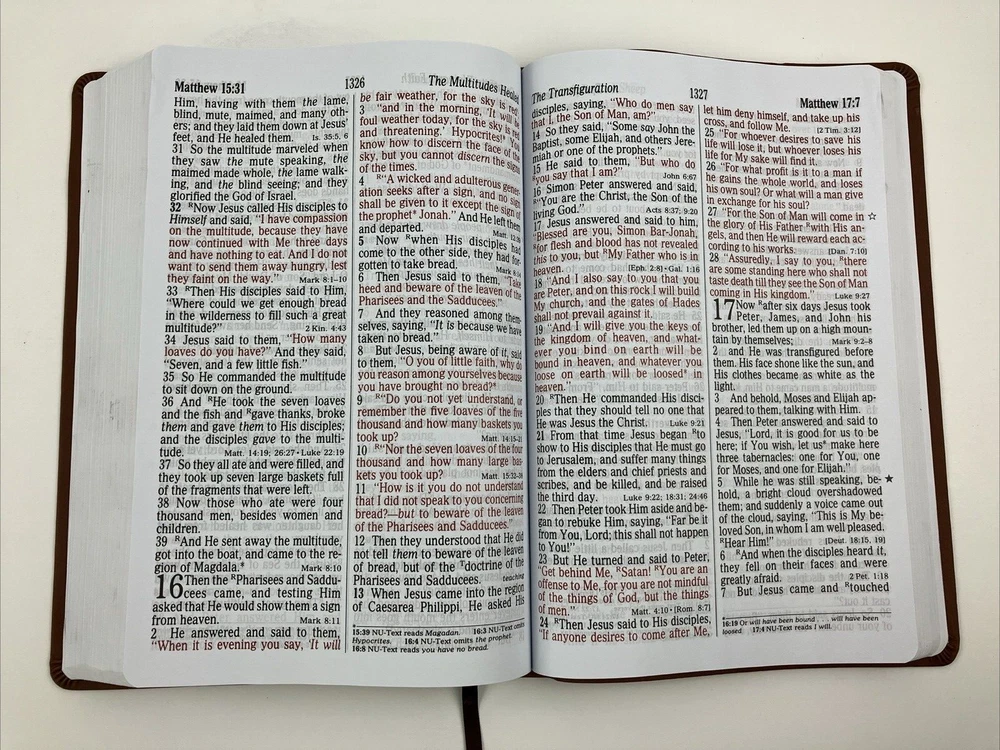 Matthew 15:31
1326
The Multitudes Healed
Him, having with them the lame,
blind, mute, maimed, and many oth-
ers; and they laid them down at Jesus'
feet, and He healed them. Is. 35:5, 6
31 So the multitude marveled when
they saw the mute speaking, the
maimed made whole, the lame walk-
ing, and the blind seeing; and they
glorified the God of Israel.
32 ᴿNow Jesus called His disciples to
Himself and said, "I have compassion
on the multitude, because they have
now continued with Me three days
and have nothing to eat. And I do not
want to send them away hungry, lest
they faint on the way." Mark 8:1–10
33 ᴿThen His disciples said to Him,
"Where could we get enough bread
in the wilderness to fill such a great
multitude?" 2 Kin. 4:43
34 Jesus said to them, "How many
loaves do you have?" And they said,
"Seven, and a few little fish."
35 So He commanded the multitude
to sit down on the ground.
36 And ᴿHe took the seven loaves
and the fish and ᴿgave thanks, broke
them and gave them to His disciples;
and the disciples gave to the multi-
tude. Matt. 14:19; 26:27 • Luke 22:19
37 So they all ate and were filled, and
they took up seven large baskets full
of the fragments that were left.
38 Now those who ate were four
thousand men, besides women and
children.
39 ᴿAnd He sent away the multitude,
got into the boat, and came to the re-
gion of Magdala.* Mark 8:10
16 Then the ᴿPharisees and Saddu-
cees came, and testing Him
asked that He would show them a sign
from heaven. Mark 8:11
2 He answered and said to them,
"When it is evening you say, 'It will
be fair weather, for the sky is red';
3 "and in the morning, 'It will be
foul weather today, for the sky is red
and threatening.' Hypocrites!* You
know how to discern the face of the
sky, but you cannot discern the signs
of the times.
4 ᴿ"A wicked and adulterous gener-
ation seeks after a sign, and no sign
shall be given to it except the sign of
the prophet* Jonah." And He left them
and departed. Matt. 12:39
5 Now ᴿwhen His disciples had
come to the other side, they had for-
gotten to take bread. Mark 8:14
6 Then Jesus said to them, "Take
heed and beware of the leaven of the
Pharisees and the Sadducees."
7 And they reasoned among them-
selves, saying, "It is because we have
taken no bread."
8 But Jesus, being aware of it, said
to them, "O you of little faith, why do
you reason among yourselves because
you have brought no bread?*
9 ᴿ"Do you not yet understand, or
remember the five loaves of the five
thousand and how many baskets you
took up? Matt. 14:15–21
10 ᴿ"Nor the seven loaves of the four
thousand and how many large bas-
kets you took up? Matt. 15:32–38
11 "How is it you do not understand
that I did not speak to you concerning
bread?—but to beware of the leaven
of the Pharisees and Sadducees."
12 Then they understood that He did
not tell them to beware of the leaven
of bread, but of the ᵀdoctrine of the
Pharisees and Sadducees. teaching
13 When Jesus came into the region
of Caesarea Philippi, He asked His
15:39 NU-Text reads Magadan. 16:3 NU-Text omits
Hypocrites. 16:4 NU-Text omits the prophet.
16:8 NU-Text reads you have no bread.
The Transfiguration
1327
Matthew 17:7
disciples, saying, "Who do men say
that I, the Son of Man, am?"
14 So they said, "Some say John the
Baptist, some Elijah, and others Jere-
miah or one of the prophets."
15 He said to them, "But who do
ᴿyou say that I am?" John 6:67
16 Simon Peter answered and said,
ᴿ"You are the Christ, the Son of the
living God." Acts 8:37; 9:20
17 Jesus answered and said to him,
"Blessed are you, Simon Bar-Jonah,
ᴿfor flesh and blood has not revealed
this to you, but ᴿMy Father who is in
heaven. [Eph. 2:8] • Gal. 1:16
18 "And I also say to you that you
are Peter, and on this rock I will build
My church, and the gates of Hades
shall not prevail against it.
19 "And I will give you the keys of
the kingdom of heaven, and what-
ever you bind on earth will be
bound in heaven, and whatever you
loose on earth will be loosed* in
heaven."
20 ᴿThen He commanded His disci-
ples that they should tell no one that
He was Jesus the Christ. Luke 9:21
21 From that time Jesus began ᴿto
show to His disciples that He must go
to Jerusalem, and suffer many things
from the elders and chief priests and
scribes, and be killed, and be raised
the third day. Luke 9:22; 18:31; 24:46
22 Then Peter took Him aside and be-
gan to rebuke Him, saying, "Far be it
from You, Lord; this shall not happen
to You!"
23 But He turned and said to Peter,
"Get behind Me, ᴿSatan! ᴿYou are an
offense to Me, for you are not mindful
of the things of God, but the things
of men." Matt. 4:10 • [Rom. 8:7]
24 ᴿThen Jesus said to His disciples,
"If anyone desires to come after Me,
let him deny himself, and take up his
cross, and follow Me. [2 Tim. 3:12]
25 "For whoever desires to save his
life will lose it, but whoever loses his
life for My sake will find it.
26 "For what profit is it to a man if
he gains the whole world, and loses
his own soul? Or what will a man give
in exchange for his soul?
27 "For the Son of Man will come in ☆
the glory of His Father ᴿwith His an-
gels, and then He will reward each ac-
cording to his works. [Dan. 7:10]
28 "Assuredly, I say to you, ᴿthere
are some standing here who shall not
taste death till they see the Son of Man
coming in His kingdom." Luke 9:27
17 Now ᴿafter six days Jesus took
Peter, James, and John his
brother, led them up on a high moun-
tain by themselves; Mark 9:2–8
2 and He was transfigured before
them. His face shone like the sun, and
His clothes became as white as the
light.
3 And behold, Moses and Elijah ap-
peared to them, talking with Him.
4 Then Peter answered and said to
Jesus, "Lord, it is good for us to be
here; if You wish, let us* make here
three tabernacles: one for You, one
for Moses, and one for Elijah."
5 While he was still speaking, be- ★
hold, a bright cloud overshadowed
them; and suddenly a voice came out
of the cloud, saying, "This is My be-
loved Son, in whom I am well pleased.
ᴿHear Him!" [Deut. 18:15, 19]
6 ᴿAnd when the disciples heard it,
they fell on their faces and were
greatly afraid. 2 Pet. 1:18
7 But Jesus came and ᴿtouched
16:19 Or will have been bound . . . will have been
loosed 17:4 NU-Text reads I will.